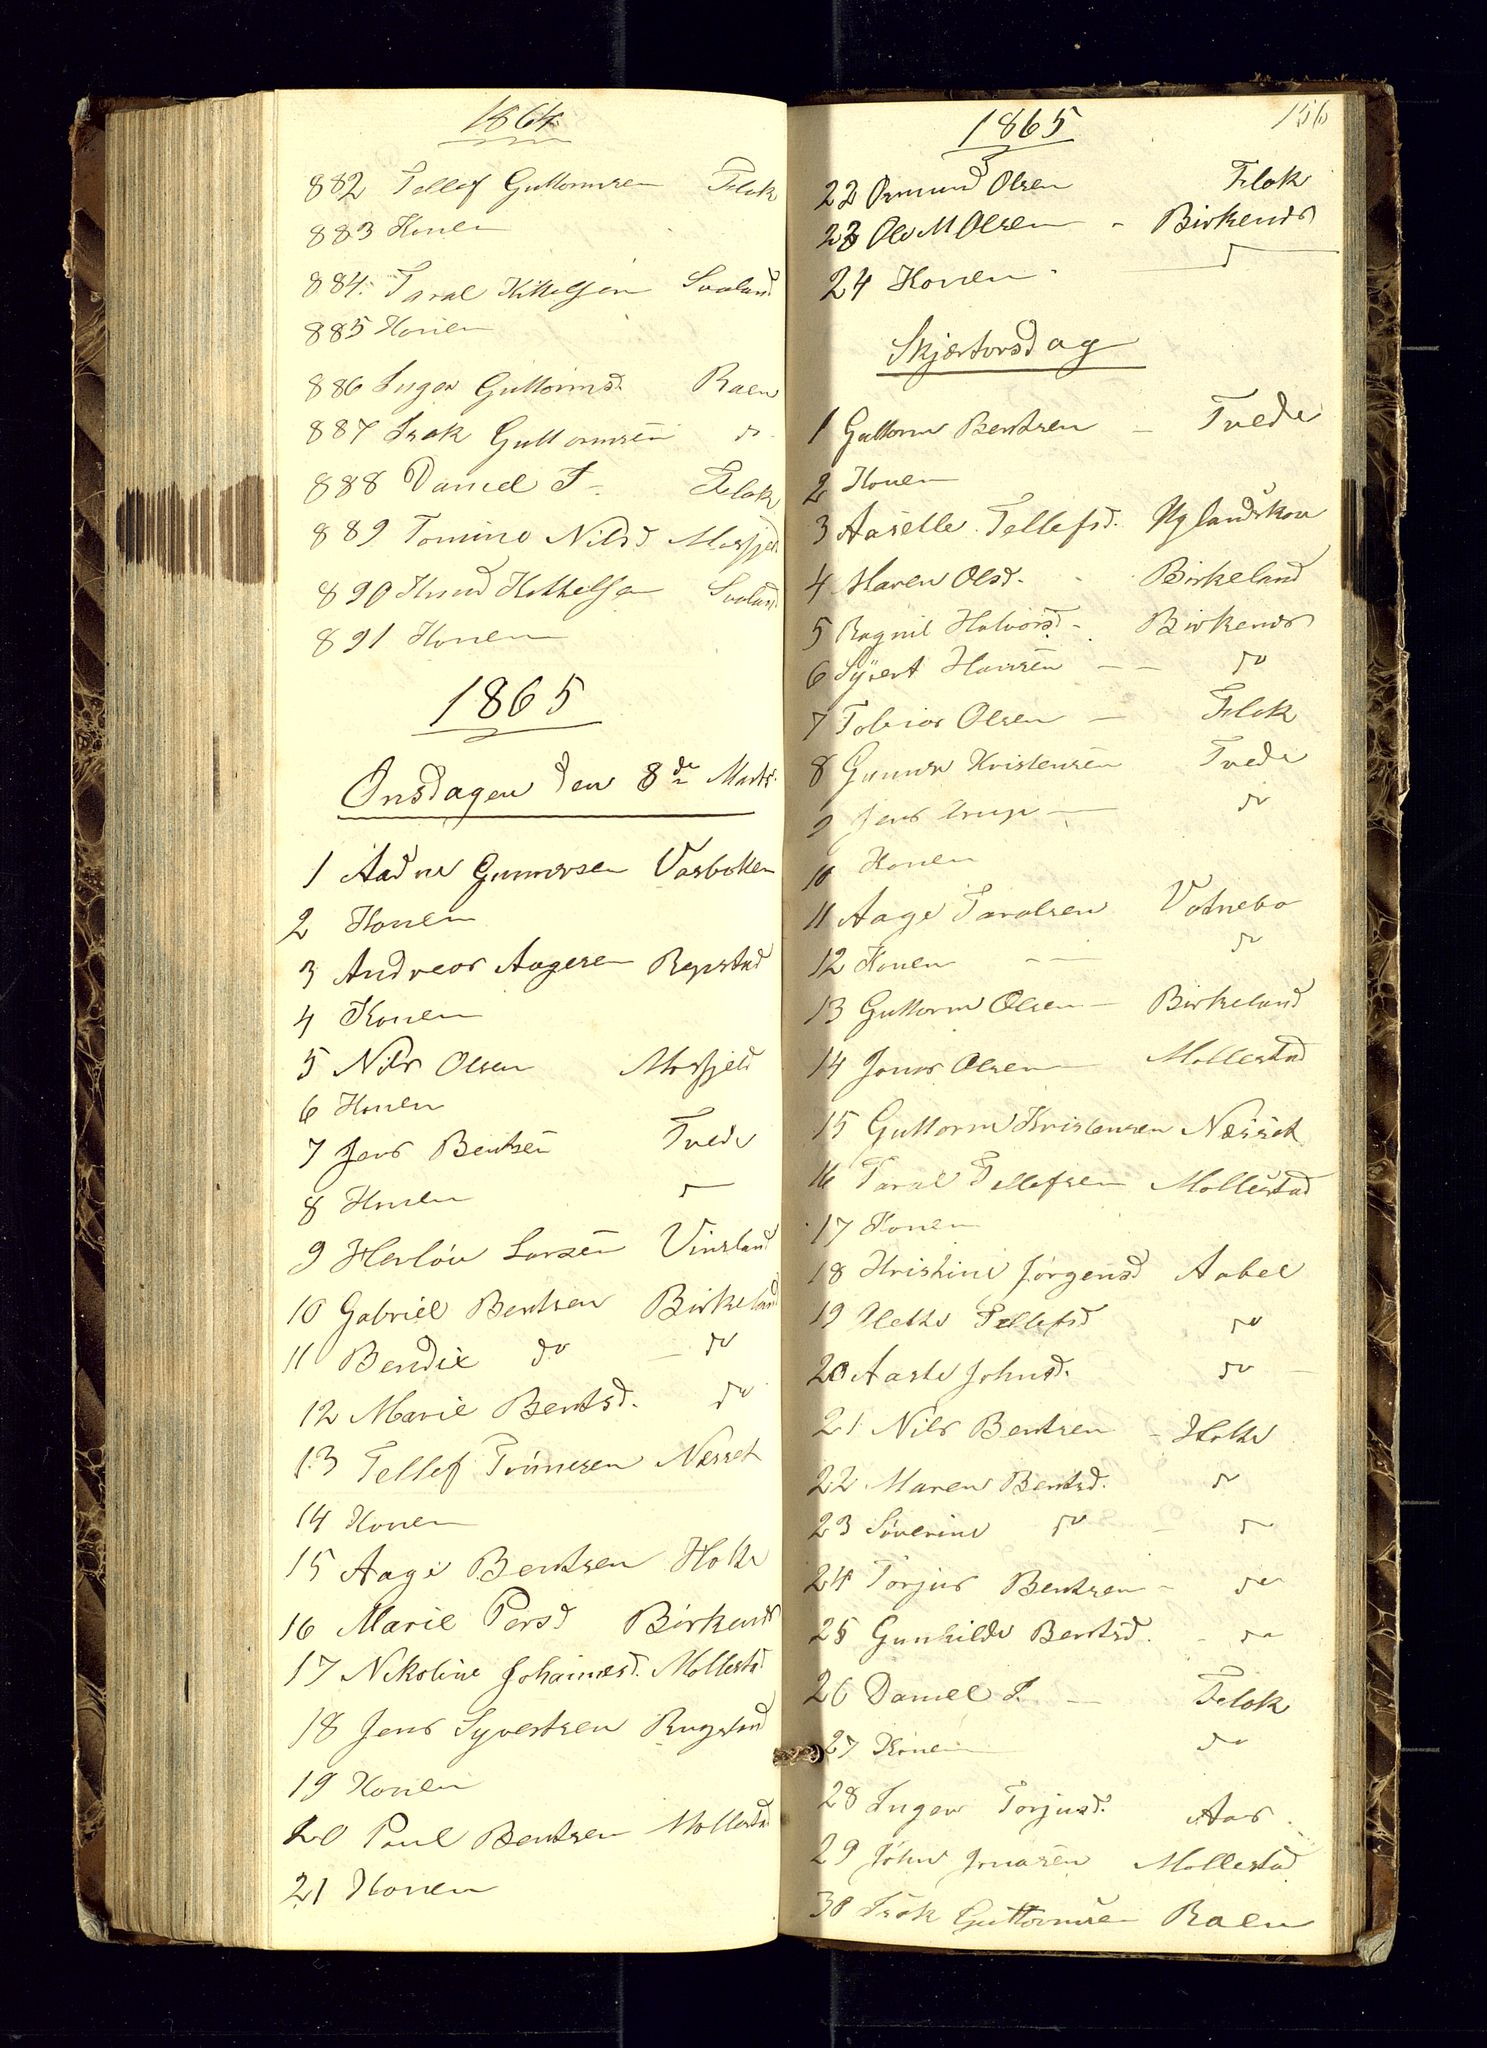 1864
882 Tellef Guttormsen Flak
883 Konen
884. Taral Kittelsen Svaland
885 Konen
886 Inger Guttormsd. Raen
887 Isak Guttormsen do
888 Daniel I. Flak
889 Tomine Nilsd Mosfjeld
890 Knud Kittelsen Svaland
891 Konen
1865
Onsdagen den 8de Marts
1 Aadne Gunnersen Vasbakken
2 Konen
3 Andreas Aagesen Repstad
4 Konen
5 Nils Olsen Mosfjeld
6 Konen
7 Jens Bentsen Tvede
8 Konen do
9 Herløv Larsen Vinsland
10 Gabriel Bentsen Birkeland
11 Bendix do do
12 Marie Bentsd. do
13 Tellef Tønnesen Nesset
14 Konen
15 Aage Bentsen Holte
16 Marie Persd Birkenes
17 Nikoline Johannesd. Mollestad
18 Jens Syvertsen Rugsland
19 Konen
20 Paul Bentsen Mollestad
21 Konen
1865
156
22 Osmund Olsen Flak
23 Ole M Olsen - Birkenes
24 Konen do
Skjærtorsdag
1 Guttorm Bentsen - Tvede
2 Konen
3 Aaselle Tellefsd. Uglandskon
4 Maren Olsd. - Birkeland
5 Ragnil Halvorsd - Birkenes
6 Syvert Hansen - - do
7 Tobias Olsen - Flak
8 Gunner Kristensen Tvede
9 Jens - do
10 Konen
11 Aage Taralsen Vatnebo
12 Konen - - do
13 Guttorm Olsen - Birkeland
14 Jonas Olsen - Mollestad
15 Guttorm Kristensen Nesset
16 Taral Tellefsen Mollestad
17 Konen
18 Kristine Jørgensd Aabel
19 Tellefsd do
20 Aaste Johnsd. do -
21 Nils Bentsen - Holte
22 Maren Bentsd. do
23 Severine do - do
24 Torjus Bentsen - do
25 Gunhilde Bentsd. - do
26 Daniel I. - Flak
27 Konen do
28 Inger Torjusd. Aas.
29 John Jonasen Mollestad
30 Isak Guttormsen Raen